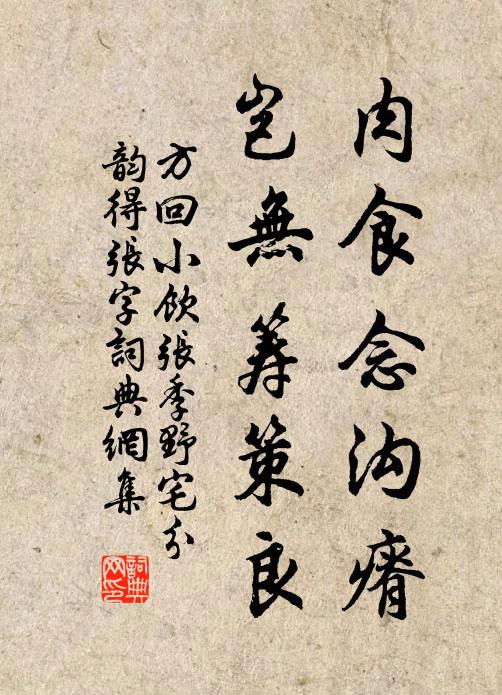 肉食念沟瘠
岂無筹策良
方回小飲張季野宅分
韵得張字詞典網集
詞典网印